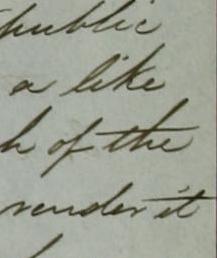 public
a like
h of the
render it